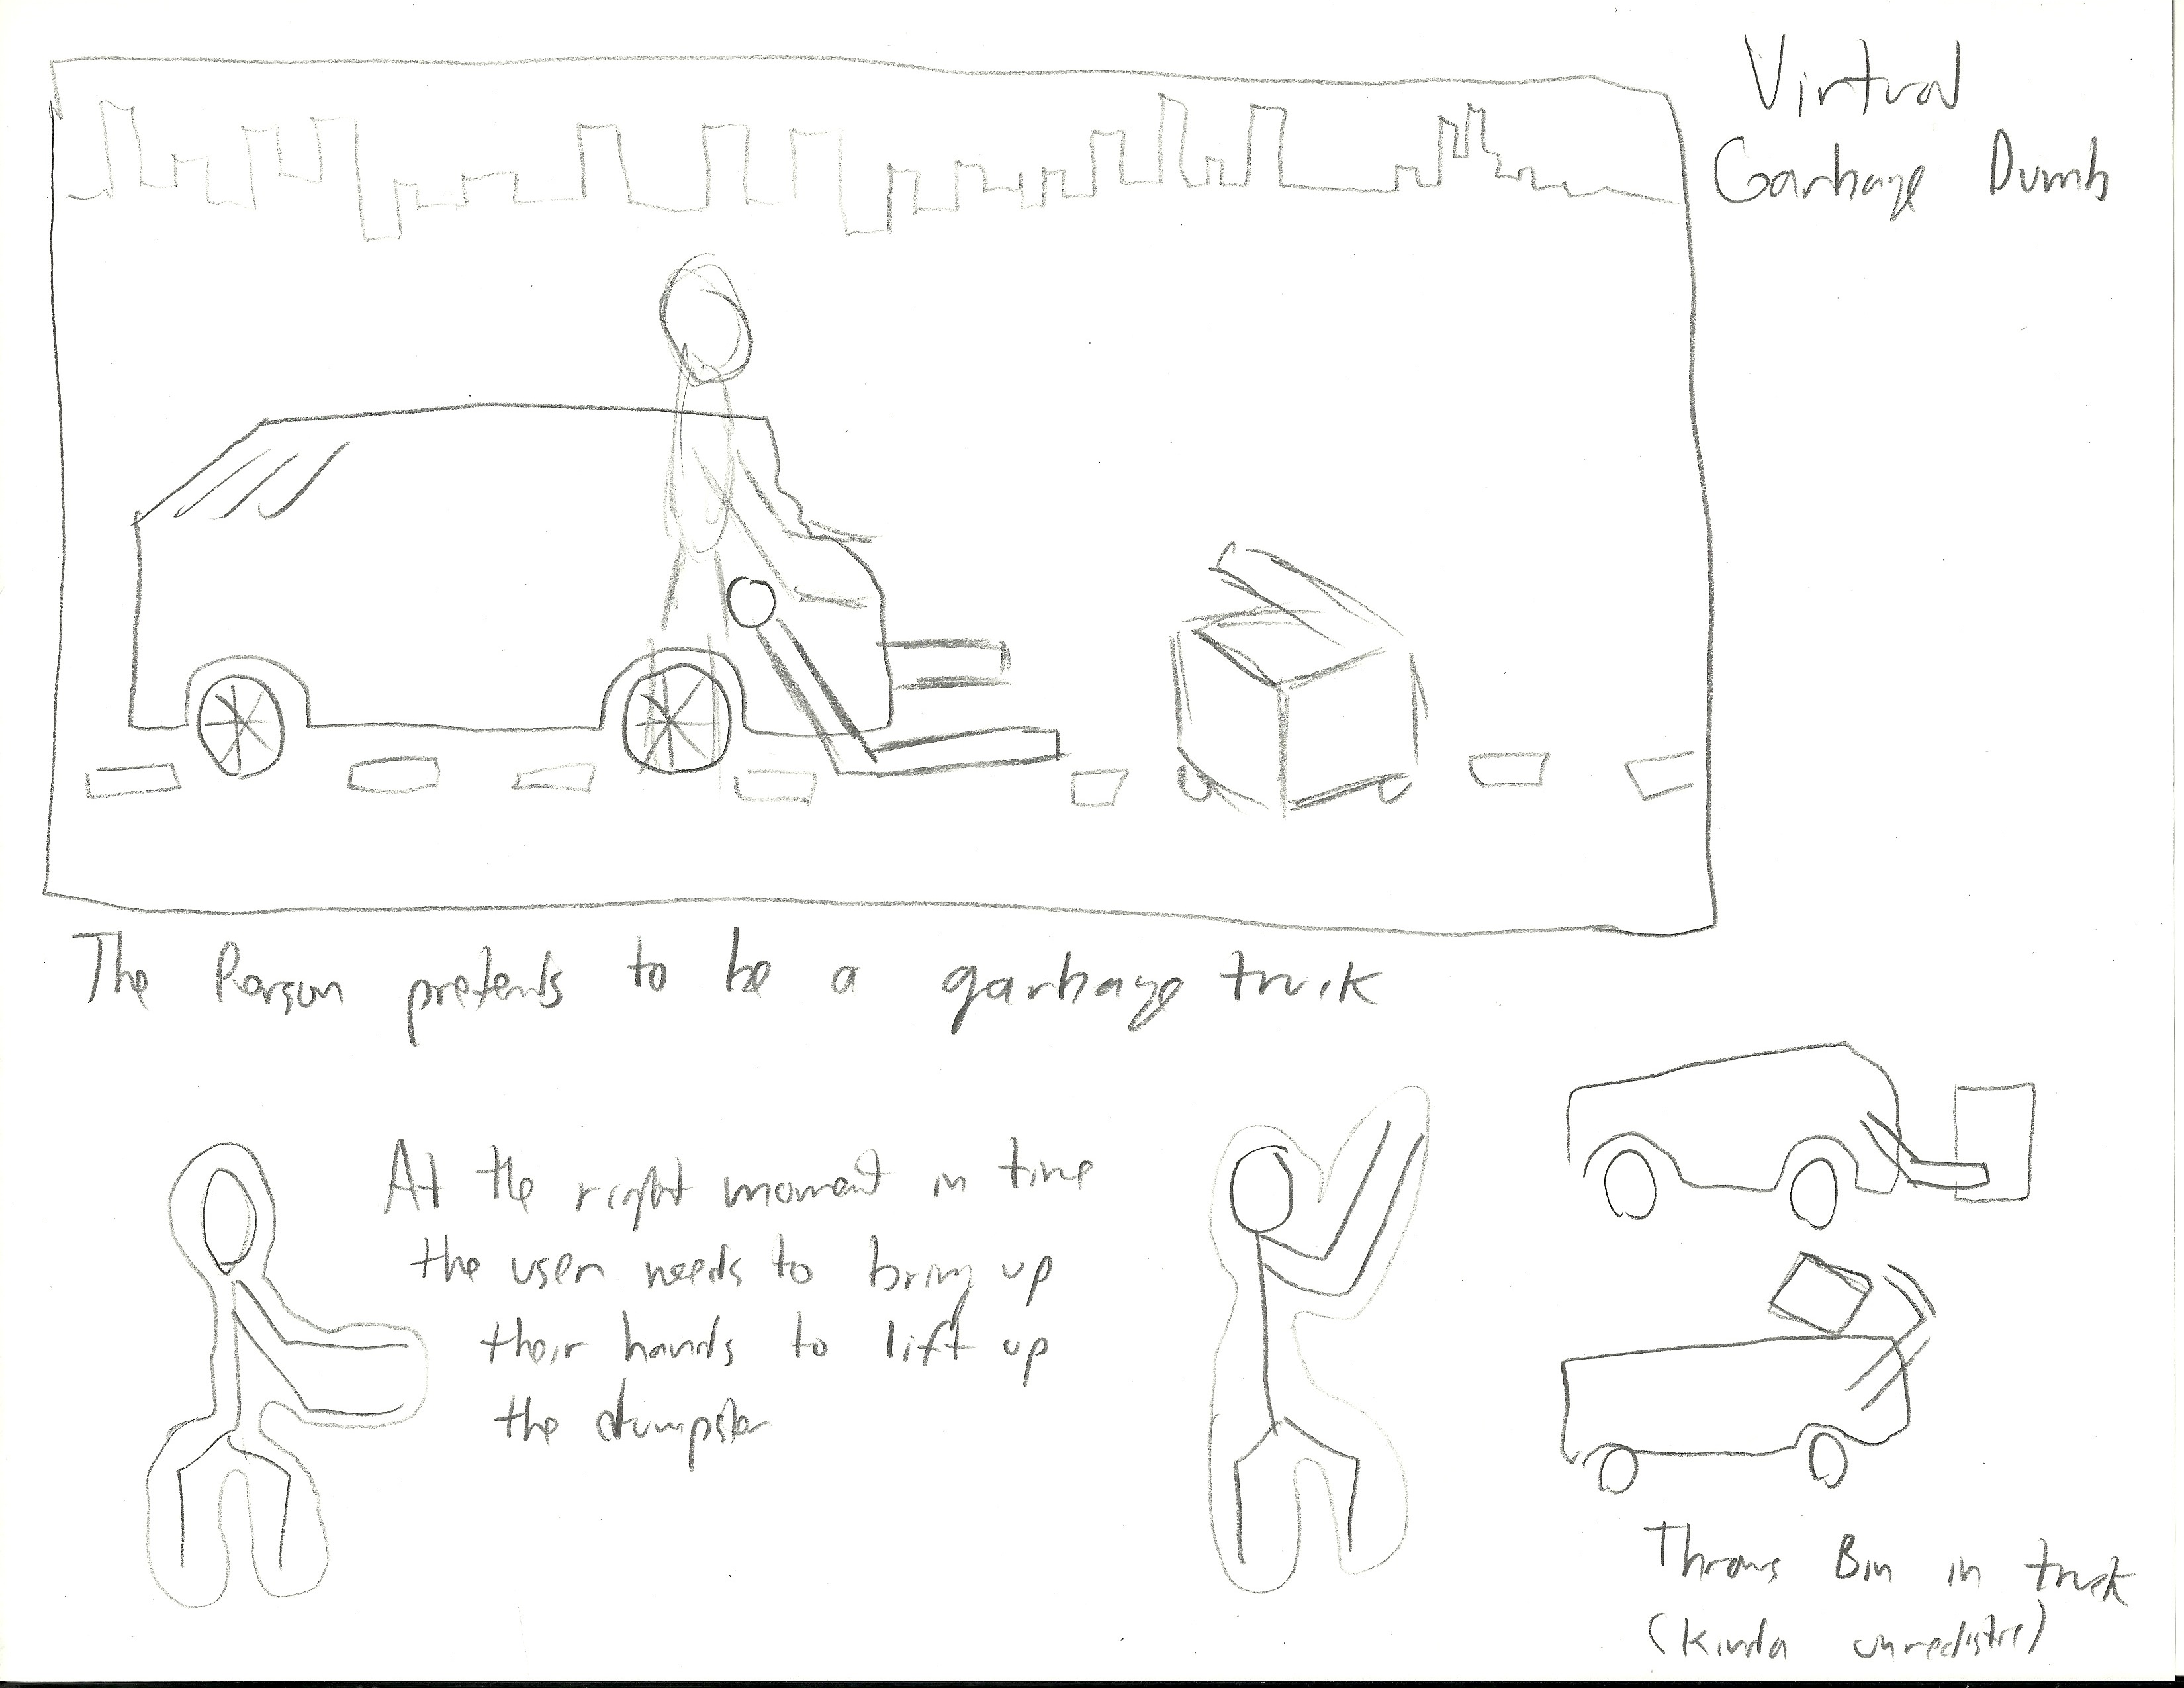 Virtual
Garbage Dumb
The Person pretends to be a garbage truck
At the right moment in time
the user needs to bring up
their hands to lift up
the dumpster
Throws Bin in truck
(Kinda unrealistic)